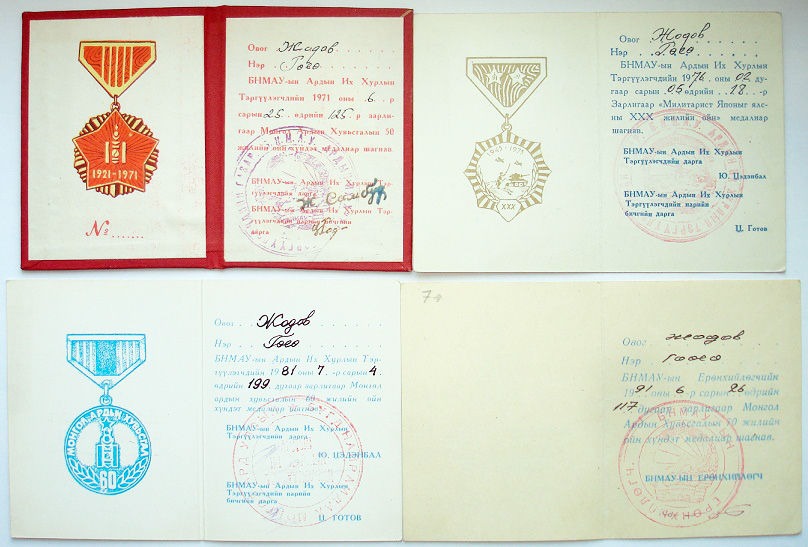 1921-1971
№.......
Овог Жодов
Нэр Гочо
БНМАУ-ын Ардын Их Хурлын
Тэргүүлэгчдийн 1971 оны 6.-р
сарын 25. өдрийн 125-р зарли-
гаар Монгол Ардын Хувьсгалын 50
жилийн ойн хүндэт медалиар шагнав.
БНМАУ-ын Ардын Их Хурлын Тэр-
гүүлэгчдийн дарга
БНМАУ-ын Ардын Их Хурлын
Тэргүүлэгчдийн нарийн бичгийн
дарга
XXX
Овог Жодов
Нэр
БНМАУ-ын Ардын Их Хурлын
Тэргүүлэгчдийн 1976 оны 02 ду-
гаар сарын 05 өдрийн 18-р
Зарлигаар «Милитарист Японыг ялс-
ны XXX жилийн ойн» медалиар
шагнав.
БНМАУ-ын Ардын Их Хурлын
Тэргүүлэгчдийн дарга
Ю. Цэдэнбал
БНМАУ-ын Ардын Их Хурлын
Тэргүүлэгчдийн нарийн
бичгийн дарга
Ц. Готов
МОНГОЛ АРДЫН ХУВЬСГАЛ
60
Овог Жодов
Нэр Гочо
БНМАУ-ын Ардын Их Хурлын Тэр-
гүүлэгчдийн 1981 оны 7.-р сарын 4.
өдрийн 199 дугаар зарлигаар Монгол
ардын хувьсгалын 60 жилийн ойн
хүндэт медалиар шагнав.
БНМАУ-ын Ардын Их Хурлын
Тэргүүлэгчдийн дарга
Ю. ЦЭДЭНБАЛ
БНМАУ-ын Ардын Их Хурлын
Тэргүүлэгчдийн нарийн
бичгийн дарга
Ц. ГОТОВ
Овог жодов
Нэр
БНМАУ-ын Ерөнхийлөгчийн
1991 оны 6-р сарын 26 өдрийн
117 дугаар зарлигаар Монгол
Ардын Хувьсгалын 70 жилийн
ойн хүндэт медалиар шагнав.
БНМАУ-ЫН ЕРӨНХИЙЛӨГЧ